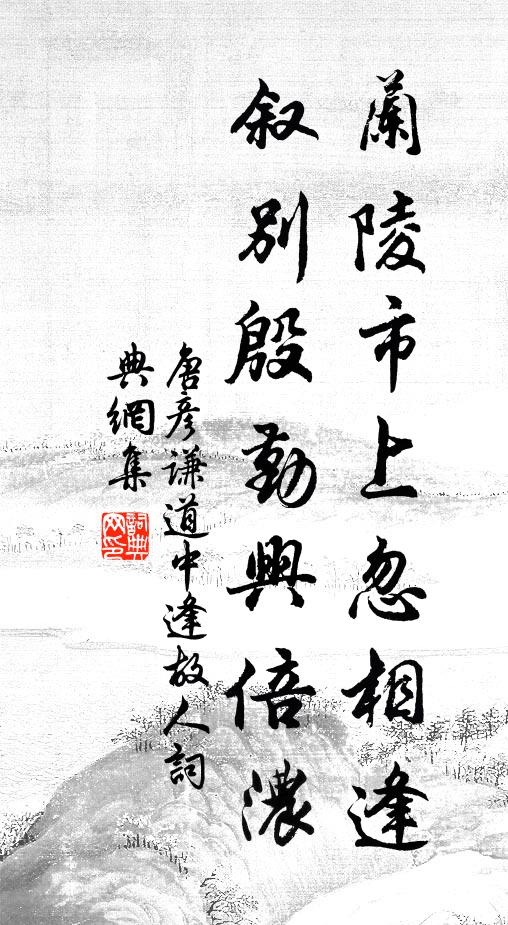 蘭陵市上忽相逢
叙別殷勤興倍濃
唐彥謙道中逢故人詞
典網集
詞典網印